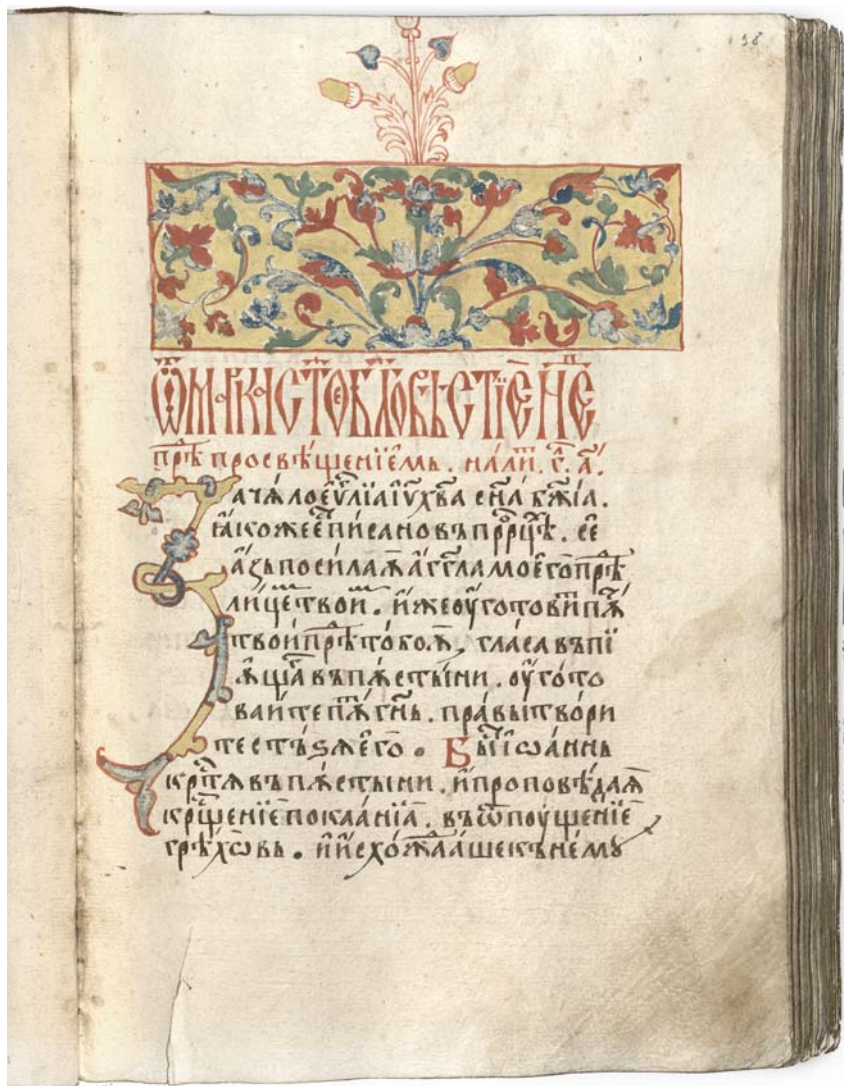 98
ѿ марка ст҃ое бл҃говѣстїе не҃
прѣ⁣ просвѣщенїемь . на лит҃ . г҃ . а҃ .
Зачѧло еѵ҃лїа іѵ҃ х҃ва сн҃а бж҃їа .
ꙗкоже е҆с писано въ прр҃цѣ . се
а҆зь посилаѫ а҆гг҃ла моего прѣ
лицем твоим . и҆же оу҆готовит пѫт
твои прѣ тобоѫ . гласа въпї
ѫща въ пѫстыни . оу҆гото
ваите пѫт гн҃ь . правы твори
те стьѕѧ е҆го . Бы і҆ѡаннь
крⷭ҇тѧ въ пѫстыни . и҆ проповѣдаѫ
крⷭ҇щенїе покаанїа . въ ѿпоущенїе
грѣхѡвь . и҆ и҆схождааше къ немꙋ